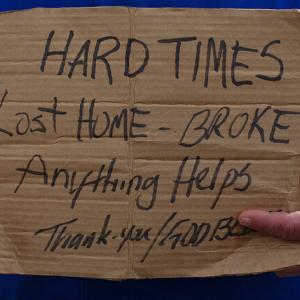 HARD TIMES
Lost HOME - BROKE
Anything Helps
Thank-you/GOD